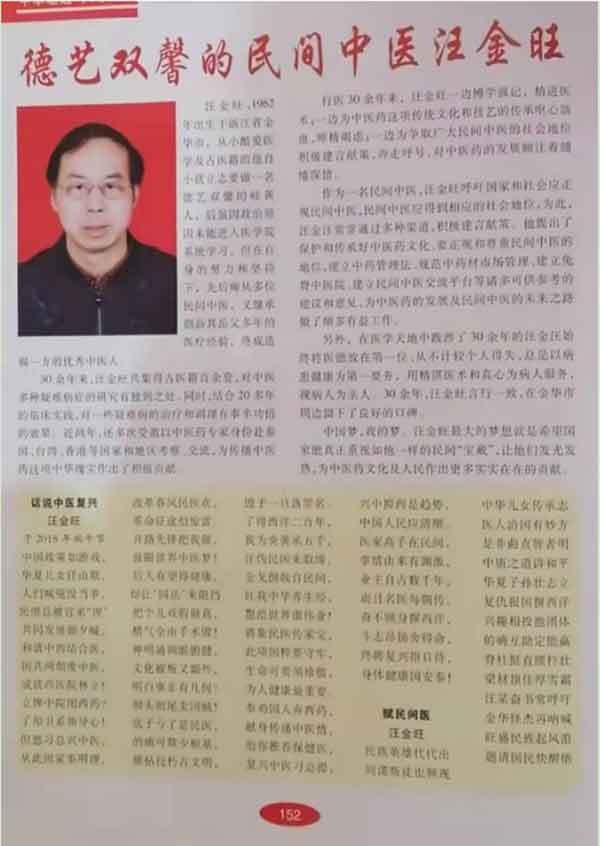 德艺双馨的民间中医汪金旺
汪金旺,1962
年出生于浙江省金
华市，从小酷爱医
学及古医籍的他自
小就立志要做一名
德艺双馨的岐黄
人，后虽因政治原
因未能进入医学院
系统学习，但在自
身的努力和坚持
下，先后师从多位
民间中医，又继承
创新其岳父多年的
医疗经验，终成造
福一方的优秀中医人
30余年来,汪金旺共集得古医籍百余套,对中医
多种疑难病症的研究有独到之处。同时,结合20多年
的临床实践,对一些疑难病的治疗和调理有事半功倍
的效果。近两年,还多次受邀以中医药专家身份赴泰
国、台湾、香港等国家和地区考察、交流,为传播中医
药这项中华瑰宝作出了积极贡献。
行医30余年来，汪金旺一边博学强记，精进医
术;一边为中医药这项传统文化和技艺的传承呕心沥
血,殚精竭虑;一边为争取广大民间中医的社会地位
积极建言献策，奔走呼号,对中医药的发展倾注着缱
绻深情。
作为一名民间中医,汪金旺呼吁国家和社会应正
视民间中医,民间中医应得到相应的社会地位,为此,
汪金旺常常通过多种渠道,积极建言献策。他提出了
保护和传承好中医药文化、要正视和尊重民间中医的
地位,建立中药管理法、规范中药材市场管理、建立免
费中医院、建立民间中医交流平台等诸多可供参考的
建议和意见,为中医药的发展及民间中医的未来之路
做了颇多有益工作。
另外，在医学天地中跋涉了30余年的汪金旺始
终将医德放在第一位,从不计较个人得失,总是以病
患健康为第一要务，用精湛医术和真心为病人服务，
视病人为亲人。30余年,汪金旺言行一致,在金华市
周边留下了良好的口碑。
中国梦,我的梦。汪金旺最大的梦想就是希望国
家能真正重视如他一样的民间“宝藏”,让他们发光发
热,为中医药文化及人民作出更多实实在在的贡献。
话说中医复兴
汪金旺
于2018年端午节
中国政策如游戏，
华夏儿女径由欺，
共同发展留夕喊，
和谐中西结合医，
国共两制度中医，
成就西医院林立！
立牌中院用西药？
但愿习总兴中医，
从此国家事明理，
改革春风民医欢，
革命征途似惊雷
开路先锋把我催，
放眼世界中医梦！
后人在望得健康，
把个儿戏假做真，
文化被叛又额外，
明白事非有几何？
这子亏了是民医，
的确可数少根基，
了得西洋二百年，
我为炎黄承五千，
红我中华养生经，
此项国粹要守牢，
生命可要须珍惜，
为人健康最重要，
奉劝国人弃西药，
献身传播中医情，
给你推荐保健医，
复兴中医习总得，
兴中摒西是趋势，
中国人民应清醒，
医家高手在民间，
事情由来有渊源，
业主自古数千年，
斗志昂扬舍得命，
终将复兴指日待，
身体健康国安泰！
赋民间医
汪金旺
民族英雄代代出
间谍叛徒也频现
中华儿女传承志
医人治国有妙方
是非曲直智者明
中庸之道诗和平
华夏子孙壮志立
复仇报国摒西洋
兴趣相投抱团体
的确互助定能赢
脊柱挺直腰杆壮
梁材顶住厚雪霜
汪某奋书常呼吁
金华怪杰再呐喊
旺盛民族起风浪
邀请国民快醒悟
152